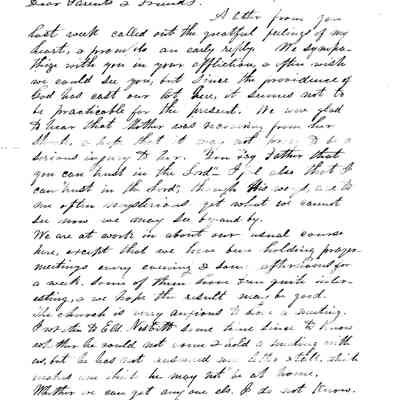 Dear Parents & Friends.
A letter from you
last week called out the greatful feelings of my
heart, & promps an early reply. We sympa-
thize with you in your affliction, & often wish
we could see you, but since the providence of
God has cast our lot here, it seemes not to
be practicable for the present. We were glad
to hear that Mother was recovering from her
& hope that it may not prove to be a
serious injury to her. You say Father that
you can trust in the Lord I feel also that I
can trust in the Lord; though His ways, are to
me often mysterious, yet what we cannot
see now we may see by and by.
We are at work in about our usual course
here, except that we have been holding prayer
meetings every evening & some afternoons for
a week. Some of them have been quite inter-
esting, & we hope the result may be good.
The church is very anxious to have a meeting.
I wrote to Eld. Nesbitt some time since to know
whether he could not come & hold a meeting with
us, but he has not answered my letter yet, which
makes me think he may not be at home.
Whether we can get any one els. I do not know.